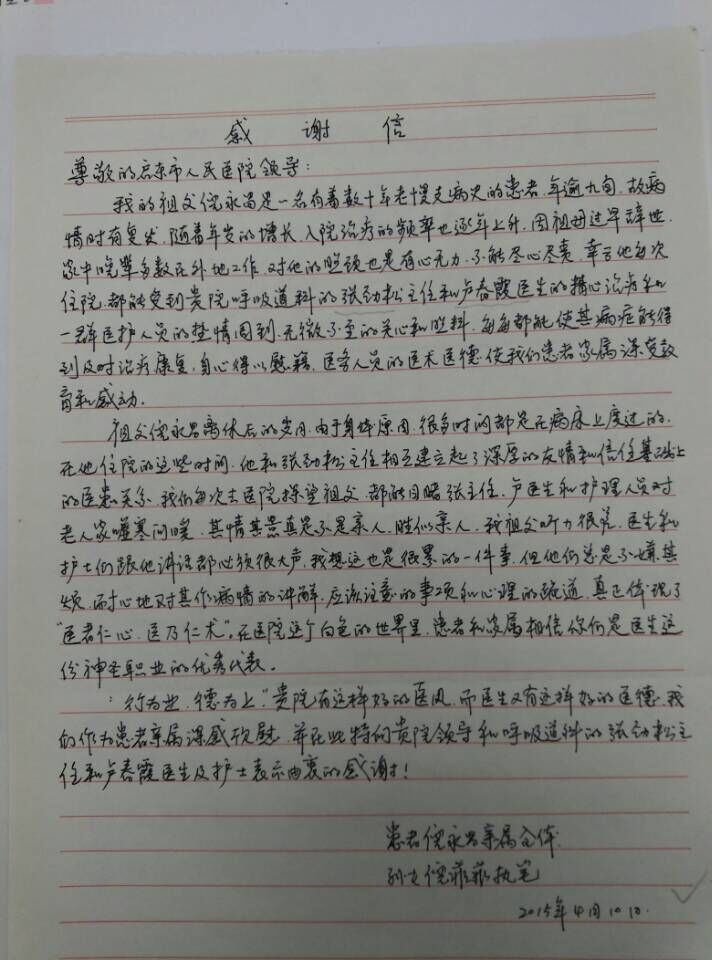 感谢信
尊敬的启东市人民医院领导：
我的祖父倪永昌是一名有着数十年老慢支病史的患者，年逾九旬，故病
情时有复发，随着年岁的增长，入院治疗的频率也逐年上升，因祖母过早辞世，
家中晚辈多数在外地工作，对他的照顾也是有心无力，不能尽心尽责，幸亏他每次
住院，都能受到贵院呼吸道科的张劲松主任和卢春霞医生的精心治疗和
一群医护人员的热情周到、无微不至的关心和照料，每每都能使其病症能得
到及时治疗康复，身心得以慰籍，医务人员的医术医德，使我们患者家属深受教
育和感动。
祖父倪永昌离休后的岁月，由于身体原因，很多时间都是在病床上度过的，
在他住院的这些时间，他和张劲松主任相互建立起了深厚的友情和信任基础上
的医患关系，我们每次去医院探望祖父，都能目睹张主任，卢医生和护理人员对
老人家嘘寒问暖，其情其景真是不是亲人，胜似亲人，我祖父听力很差，医生和
护士们跟他讲话都必须很大声，我想这也是很累的一件事，但他们总是不嫌其
烦，耐心地对其作病情的讲解，应该注意的事项和心理的疏通，真正体现了
“医者仁心，医乃仁术”。在医院这个白色的世界里，患者和家属相信你们是医生这
份神圣职业的优秀代表。
“行为业，德为上”贵院有这样好的医风，而医生又有这样好的医德，我
们作为患者亲属深感欣慰，并在此特向贵院领导和呼吸道科的张劲松主
任和卢春霞医生及护士表示由衷的感谢！
患者倪永昌亲属全体
孙女倪菲菲执笔
2015年4月10日.